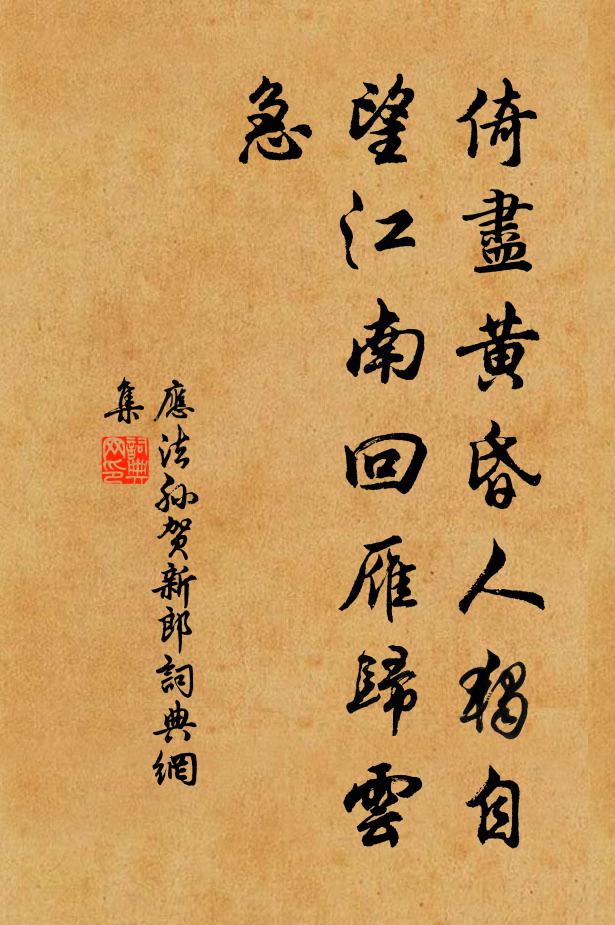 倚盡黄昏人獨自
望江南回雁歸雲
急
應法孫賀新郎詞典網
集
詞典網印